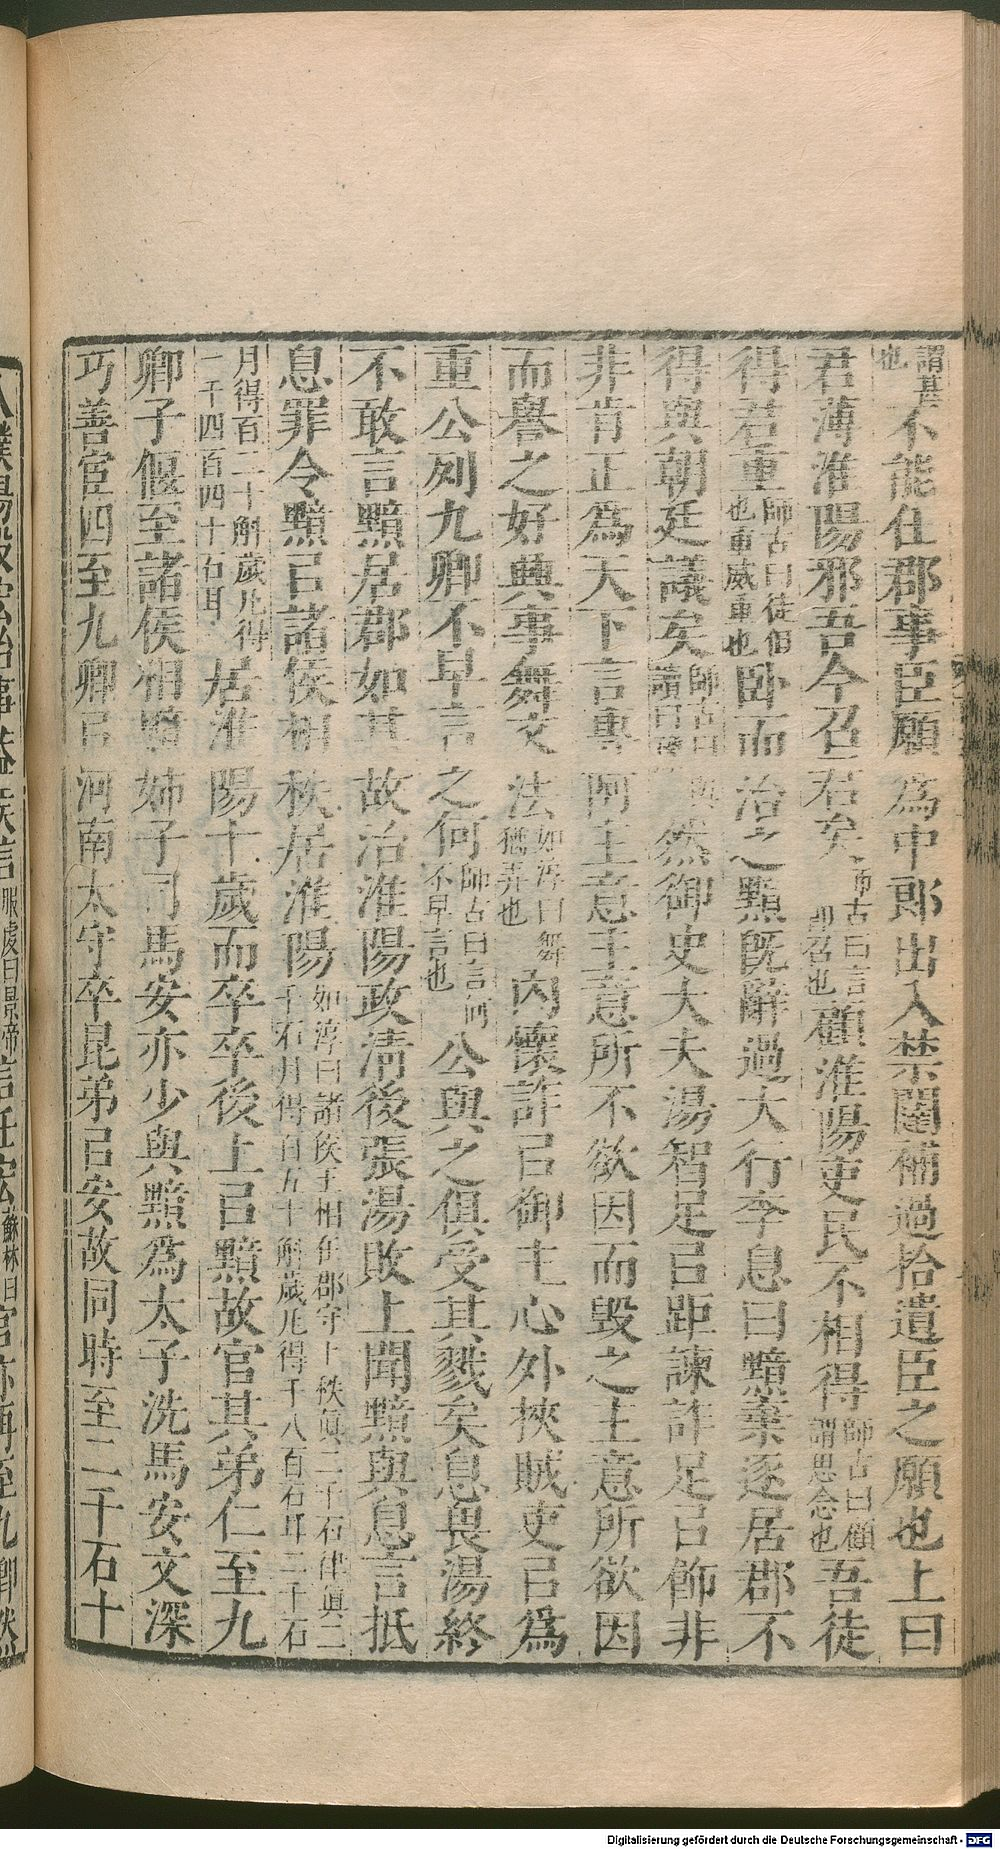 謂甚也不能任郡事臣願為中郎出入禁闥補過拾遺臣之願也上曰
君薄淮陽邪吾今召君矣師古曰言即召也顧淮陽吏民不相得師古曰顧謂思念也吾徒
得君重師古曰徒但也重威重也卧而治之黯既辭過大行李息曰黯棄逐居郡不
得與朝廷議矣師古曰與讀曰豫然御史大夫湯智足㠯距諫詐足㠯飾非
非肯正為天下言專阿主意主意所不欲因而毀之主意所欲因
而譽之好興事舞文法如淳曰舞猶弄也內懷詐㠯御主心外挾賊吏㠯為
重公列九卿不早言之何師古曰言何不早言也公與之俱受其戮矣息畏湯終
不敢言黯居郡如其故治淮陽政清後張湯敗上聞黯與息言抵
息罪令黯㠯諸侯相秩居淮陽如淳曰諸侯王相在郡守上秩真二千石律真二千石月得百五十斛歲凡得千八百石耳二千石
月得百二十斛歲凡得一千四百四十石耳居淮陽十歲而卒卒後上㠯黯故官其弟仁至九
卿子偃至諸侯相黯姊子司馬安亦少與黯為太子洗馬安文深
巧善宦四至九卿㠯河南太守卒昆弟㠯安故同時至二千石十
人濮陽段宏始事蓋侯信服虔曰景帝信任宏蘇林曰官亦再至九卿然
Digitalisierung gefördert durch die Deutsche Forschungsgemeinschaft - DFG